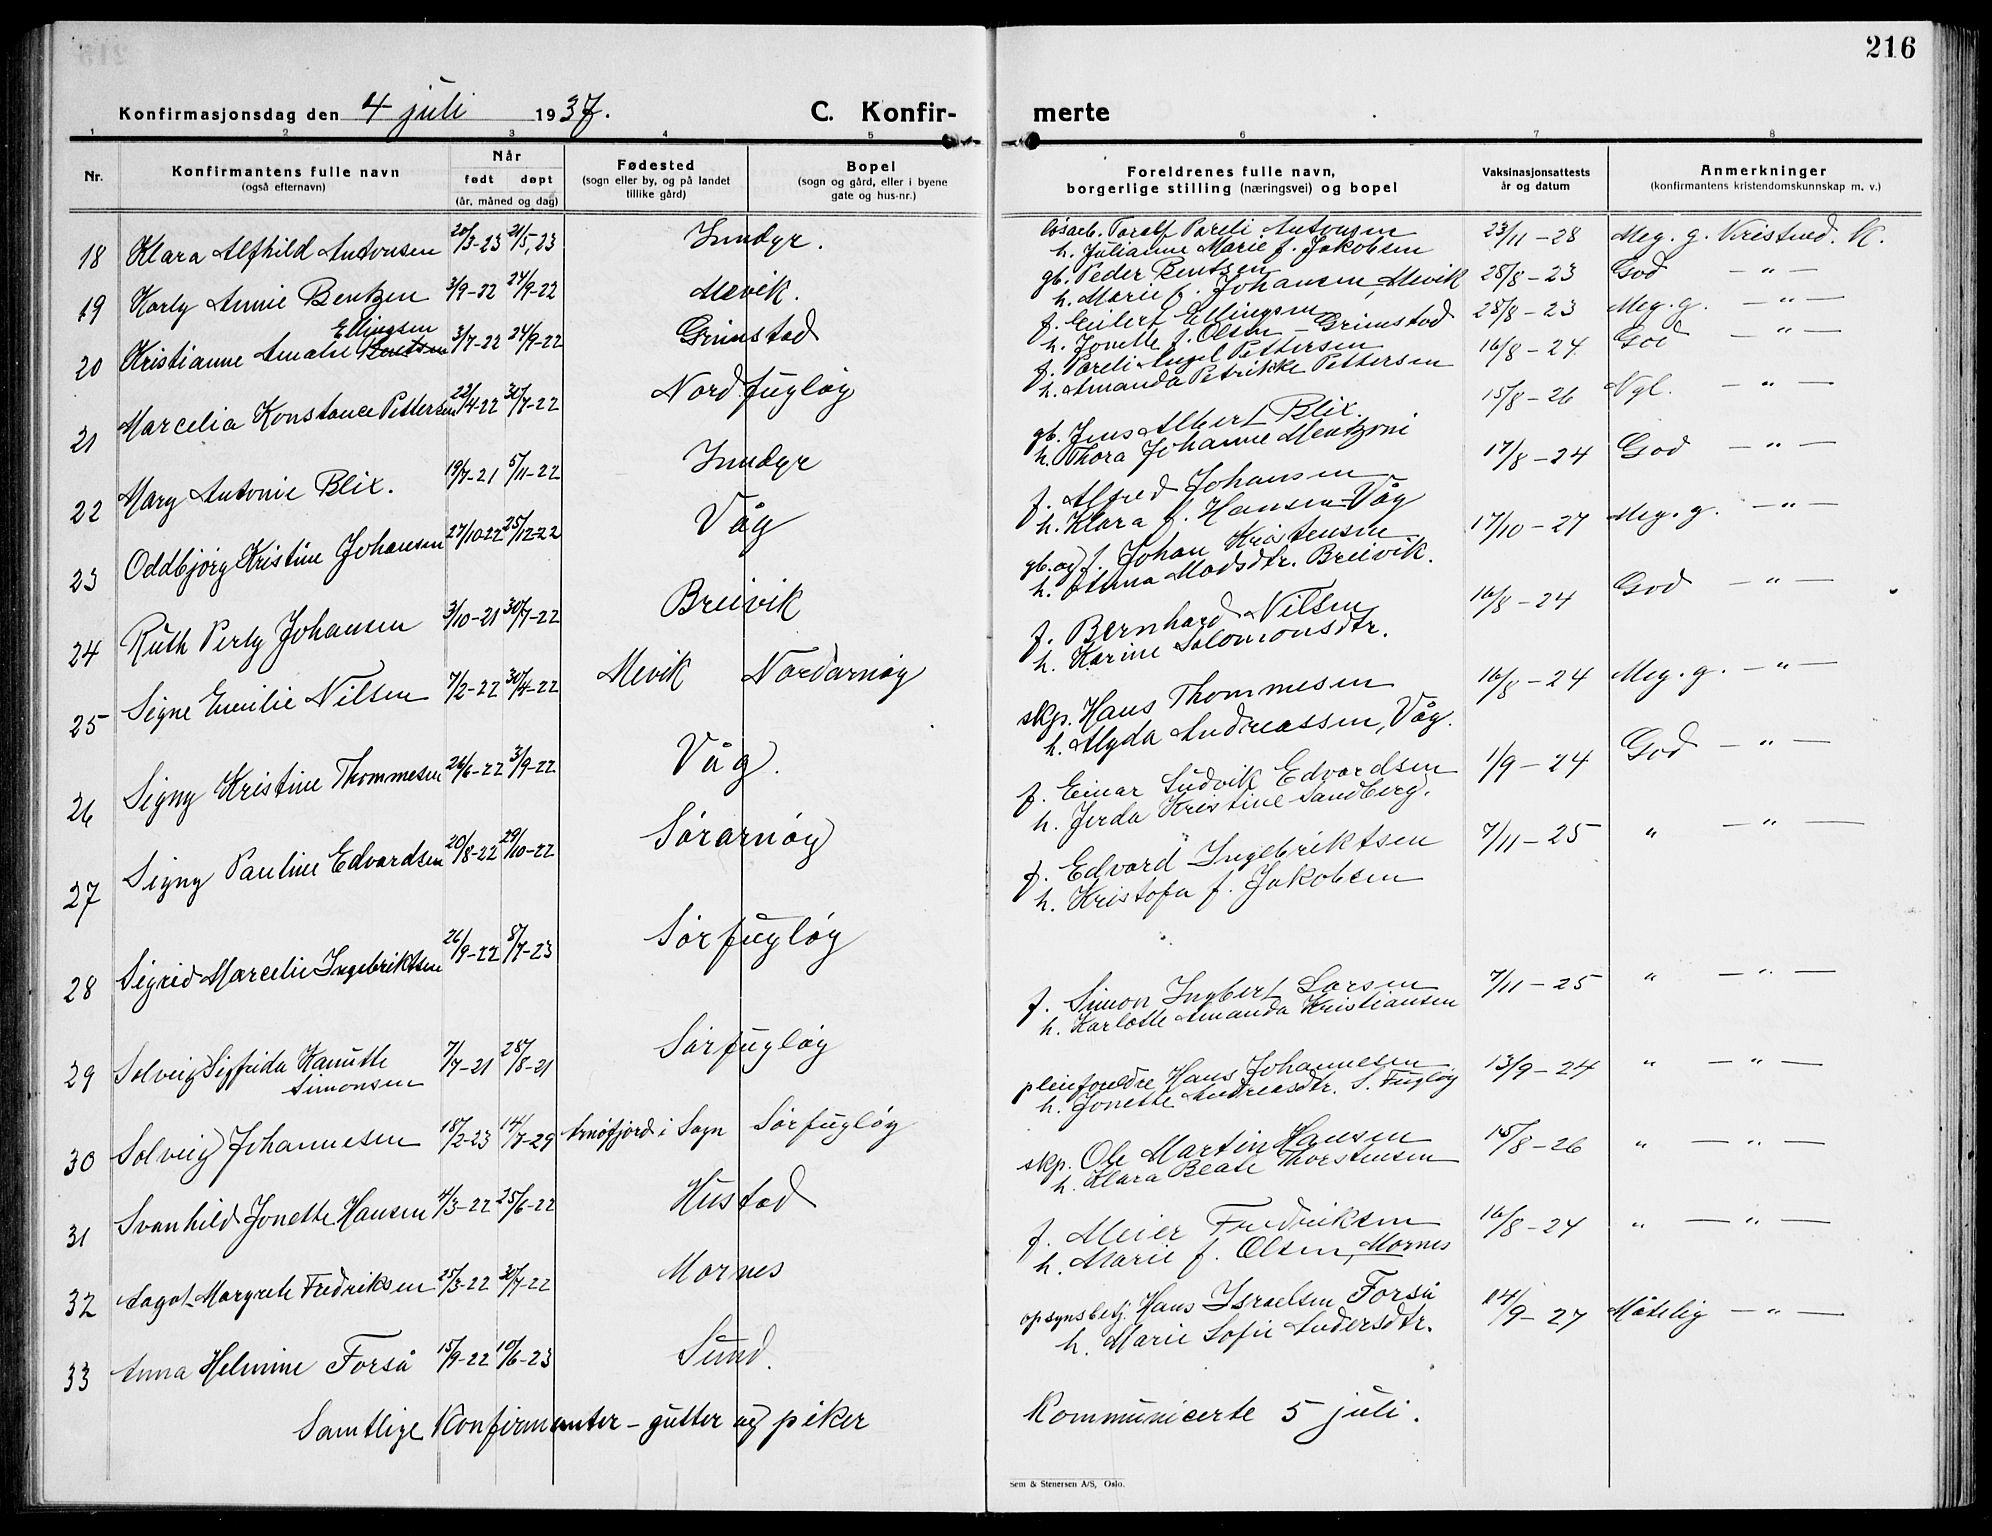 216
Konfirmasjonsdag den 4 juli 1937. C. Konfir- merte
1 2 3 4 5 6 7 8
Nr. Konfirmantens fulle navn (også efternavn) Når født døpt (år, måned og dag) Fødested (sogn eller by, og på landet tillike gård) Bopel (sogn og gård, eller i byene gate og hus-nr.) Foreldrenes fulle navn, borgerlige stilling (næringsvei) og bopel Vaksinasjonsattests år og datum Anmerkninger (konfirmantens kristendomskunnskap m. v.)
18 Klara Alfhild Antonsen 20/3-23 21/5-23 Inndyr. løsarb. Toralf Pareli Antonsen 23/11-28 Meg. g. Kristend. K.
h. Julianne Marie f. Jakobsen
19 Karly Annie Bentzen 3/9-22 24/9-22 Mevik. gb. Peder Bentzen 28/8-23 God — " —
h. Marie f. Johansen, Mevik
20 Kristianne Amalie Ellingsen 3/7-22 24/9-22 Grimstad f. Eilert Ellingsen 28/8-23 Meg. g. — " —
h. Jonette f. Olsen - Grimstad
21 Marcelia Konstance Pettersen 22/4-22 30/7-22 Nordfugløy f. Pareli Angel Pettersen 16/8-24 God — " —
h. Amanda Petrikke Pettersen
22 Mary Antonie Blix. 19/7-21 5/11-22 Inndyr gb. Jens Albert Blix. 15/8-26 Ngl. — " —
h. Thora Johanne Mentzoni
23 Oddbjørg Kristine Johansen 27/10-22 25/12-22 Våg f. Alfred Johansen 17/8-24 God — " —
h. Klara f. Hansen Våg
24 Ruth Perly Johansen 3/10-21 30/7-22 Breivik gb. og f. Johan Kristensen 17/10-27 Meg. g. — " —
h. Anna Madsdtr. Breivik.
25 Signe Emilie Nilsen 7/2-22 30/4-22 Mevik Nordarnøy f. Bernhard Nilsen 16/8-24 God — " —
h. Karine Salomonsdtr.
26 Signy Kristine Thommesen 26/6-22 3/9-22 Våg. skp. Hans Thommesen 16/8-24 Meg. g. — " —
h. Alyda Andreassen, Våg.
27 Signy Pauline Edvardsen 20/8-22 29/10-22 Sørarnøy f. Einar Ludvik Edvardsen 1/9-24 God — " —
h. Jerda Kristine Sandberg.
28 Sigrid Marcelie Ingebriktsen 26/9-22 8/7-23 Sørfugløy f. Edvard Ingebriktsen 7/11-25 " — " —
h. Kristofa f. Jakobsen
29 Solveig Sigfrida Kanutte Simonsen 7/7-21 28/8-21 Sørfugløy f. Simon Ingbert Larsen 7/11-25 " — " —
h. Karlotte Amanda Kristiansen
30 Solveig Johannesen 18/2-23 14/7-29 Arnøfjord i Sogn Sørfugløy pleieforeldre Hans Johannesen 13/9-24 " — " —
h. Jonette Andreasdtr. S. Fugløy
31 Svanhild Jonette Hansen 4/3-22 25/6-22 Hustad skp. Ole Martin Hansen 15/8-26 " — " —
h. Klara Beate Thorstensen
32 Aagot Margrete Fredriksen 25/3-22 30/7-22 Mornes f. Meier Fredriksen 16/8-24 " — " —
h. Marie f. Olsen, Mornes
33 Anna Helmine Forså 15/9-22 10/6-23 Sund. opsynsbetj. Hans Israelsen Forså 14/9-27 Måtelig — " —
h. Marie Sofie Andersdtr.
Samtlige Konfirmanter - gutter og piker Kommunicerte 5 juli.
Sem & Stenersen A/S, Oslo.